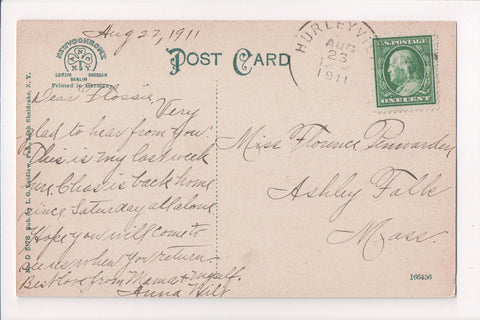 Aug 22, 1911
POST CARD
NEWVOCHROME
LEIPZIG DRESDEN
BERLIN
Printed in Germany
HURLEYV
AUG
23
1911
U.S. POSTAGE
ONE CENT
Dear Flossie, Very
glad to hear from you.
This is my last week
here. Chas is back home
since Saturday all alone
Hope you will come to
see us when you return.
Best love from Mama & myself.
Anna Hilt
Miss Florence Penwarden
Ashley Falls
Mass.
D 5078 Pub. by L. G. Sheldrake, N. Y.
166456